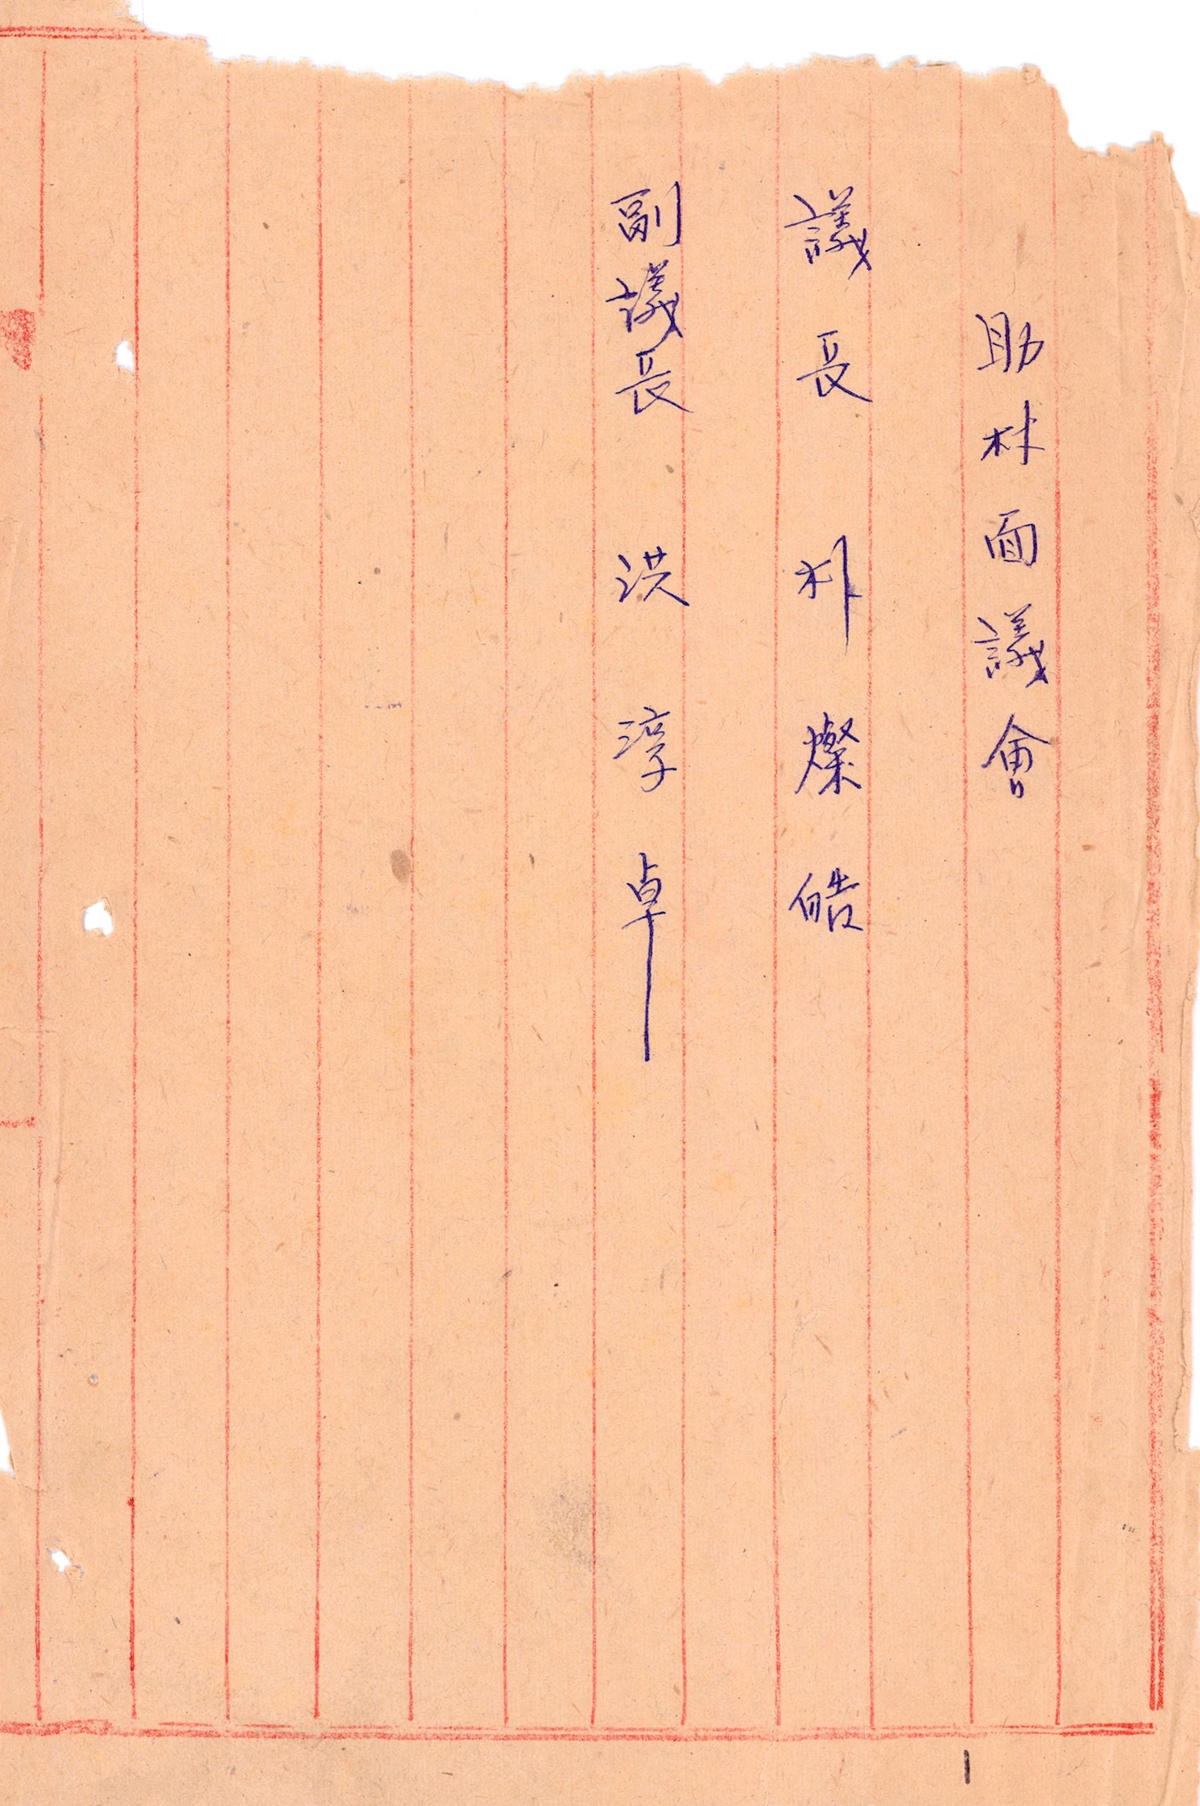 助林面議會
議長 朴燦皓
副議長 洪淳卓